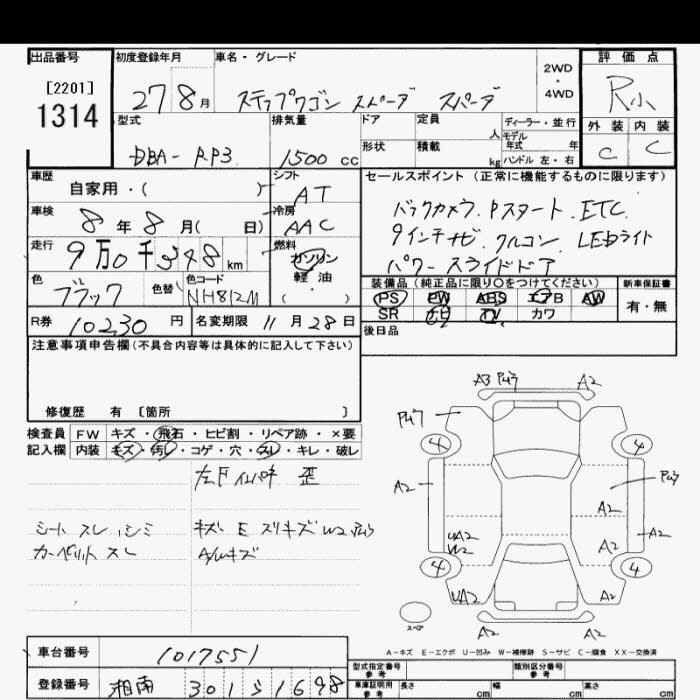 出品番号 初度登録年月 車名・グレード 2WD ・ 4WD 評価点
[2201]
1314
27 8月 ステップワゴン スパーダ スパーダ R小
型式 排気量 ドア 定員 人 ディーラー・並行 外装 内装
モデル年式 年
DBA-RP3 1500 cc 形状 積載 kg ハンドル 左・右 C C
車歴 自家用・( ) シフト AT セールスポイント (正常に機能するものに限ります)
車検 8年8月( 日) 冷房 AAC バックカメラ.Pスタート.ETC.
走行 9万0千348km 燃料 ガソリン 軽油 ( ・ ) 9インチナビ.クルコン.LEDライト
パワースライドドア
色 ブラック 色替 色コード NH812M 装備品 (純正品に限り○をつけてください) 新車保証書
PS PW ABS エアB AW 有・無
R券 10230円 名変期限 11月28日 SR ナビ TV カワ
注意事項申告欄(不具合内容等は具体的に記入して下さい) 後日品
修復歴 有 [箇所 ]
検査員 FW キズ・飛石・ヒビ割・リペア跡・×要
記入欄 内装 キズ・汚レ・コゲ・穴・スレ・キレ・破レ
左F インパネ 歪
シート スレ.シミ キズ・E スリキズ W2
カーペット スレ A/Wキズ
A3 A2
4 4
A2 A2 A2
UA2 W2 A2
4 4
UA2
A2 A2
スペア
A-キズ E-エクボ U-凹み W-補修跡 S-サビ C-腐食 XX-交換済
車台番号 1017551 型式指定番号 参考 類別区分番号 参考
登録番号 湘南 301 ス 1698 車庫証明用 参考 長さ cm 幅 cm 高さ cm